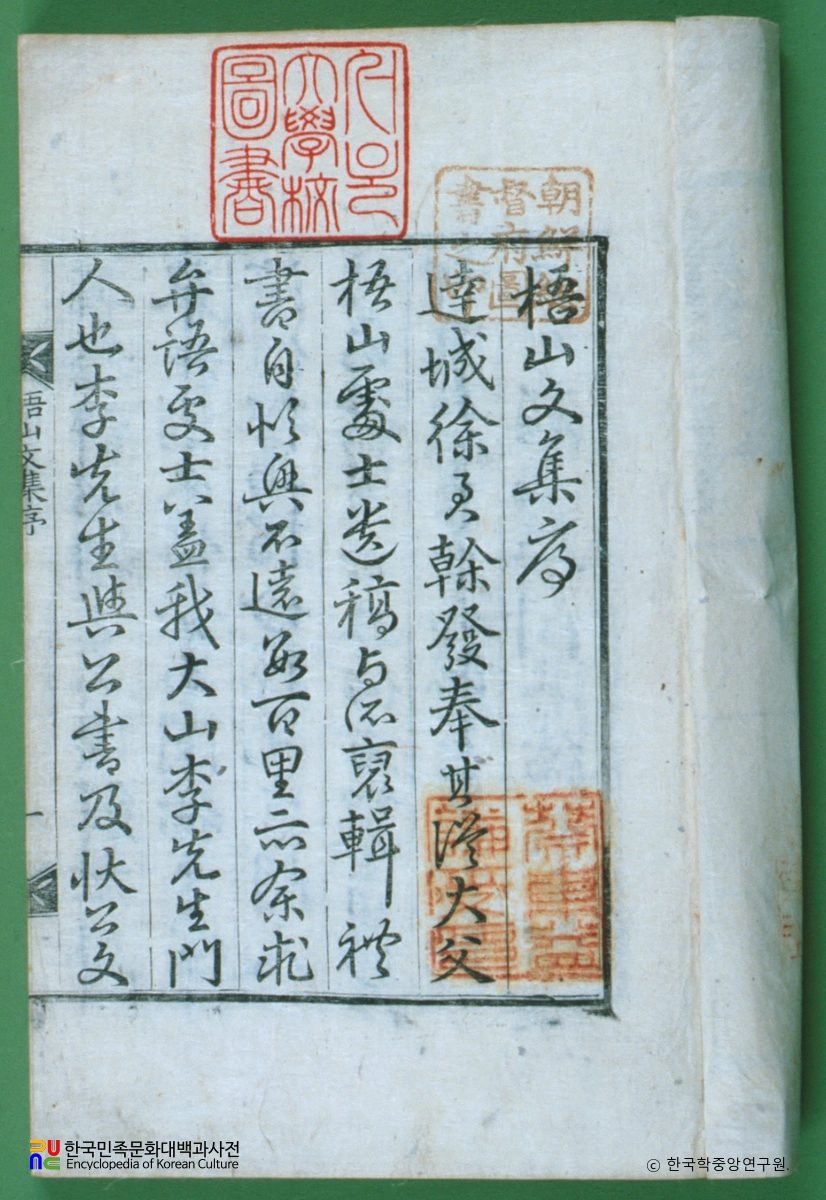 서울大學校圖書
朝鮮總督府圖書之印
梧山文集序
達城徐君幹發奉其從大父
梧山處士遺稿与所裒輯禮
書自與不遠數百里示余求
弁語處士盖我大山李先生門
人也李先生與公書及狀公文
梧山文集序
一
한국민족문화대백과사전
Encyclopedia of Korean Culture
ⓒ 한국학중앙연구원.